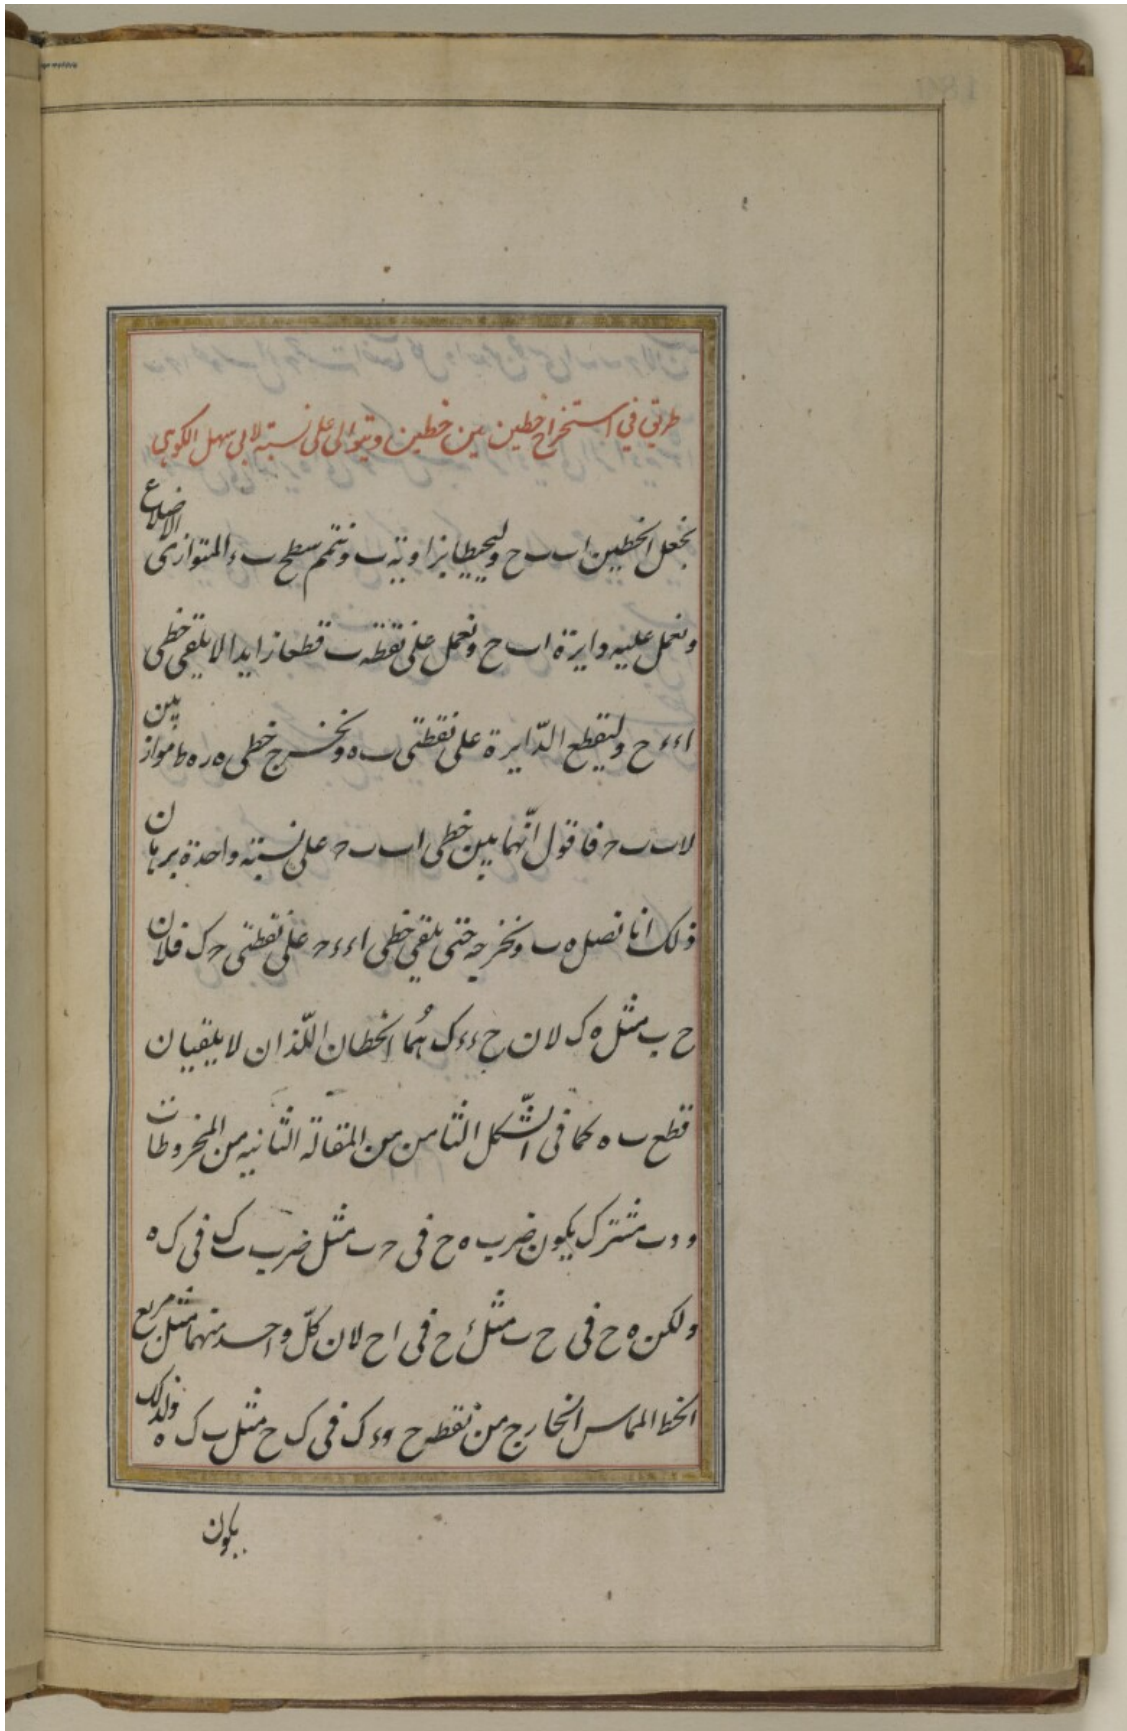 طريق في استخراج خطين بين خطين ويتوالى على نسبة لابي سهل الكوهي
نجعل الخطين ا ب ب ح وليحيطا بزاوية ب ونتمم سطح ب ء المتوازى الاضلاع
ونعمل عليه دايرة ا ب ح ونعمل على نقطة ب قطعا زايدا لا يلقى خطى
ا ء ء ح وليقطع الدّايرة على نقطتى ب ه ونخرج خطى ه ر ه ط موازيين
لا ب ب ح فاقول انّهما بين خطى ا ب ب ح على نسبة واحدة برهان
ذلك انا نصل ه ب ونخرجه حتى يلقى خطى ا ء ء ح على نقطتى ح ك فلان
ح ب مثل ه ك لان ح ء ء ك هُما الخطان اللّذان لا يلقيان
قطع ب ه كما فى الشّكل الثامن من المقالة الثانيه من المخروطات
و ه ب مشترك يكون ضرب ه ح فى ح ب مثل ضرب ب ك فى ك ه
ولكن ه ح فى ح ب مثل ء ح فى ا ح لان كلّ واحد منهما مثل مربع
الخط المماس الخارج من نقطه ح و ء ك فى ك ح مثل ب ك ه ولذلك
يكون